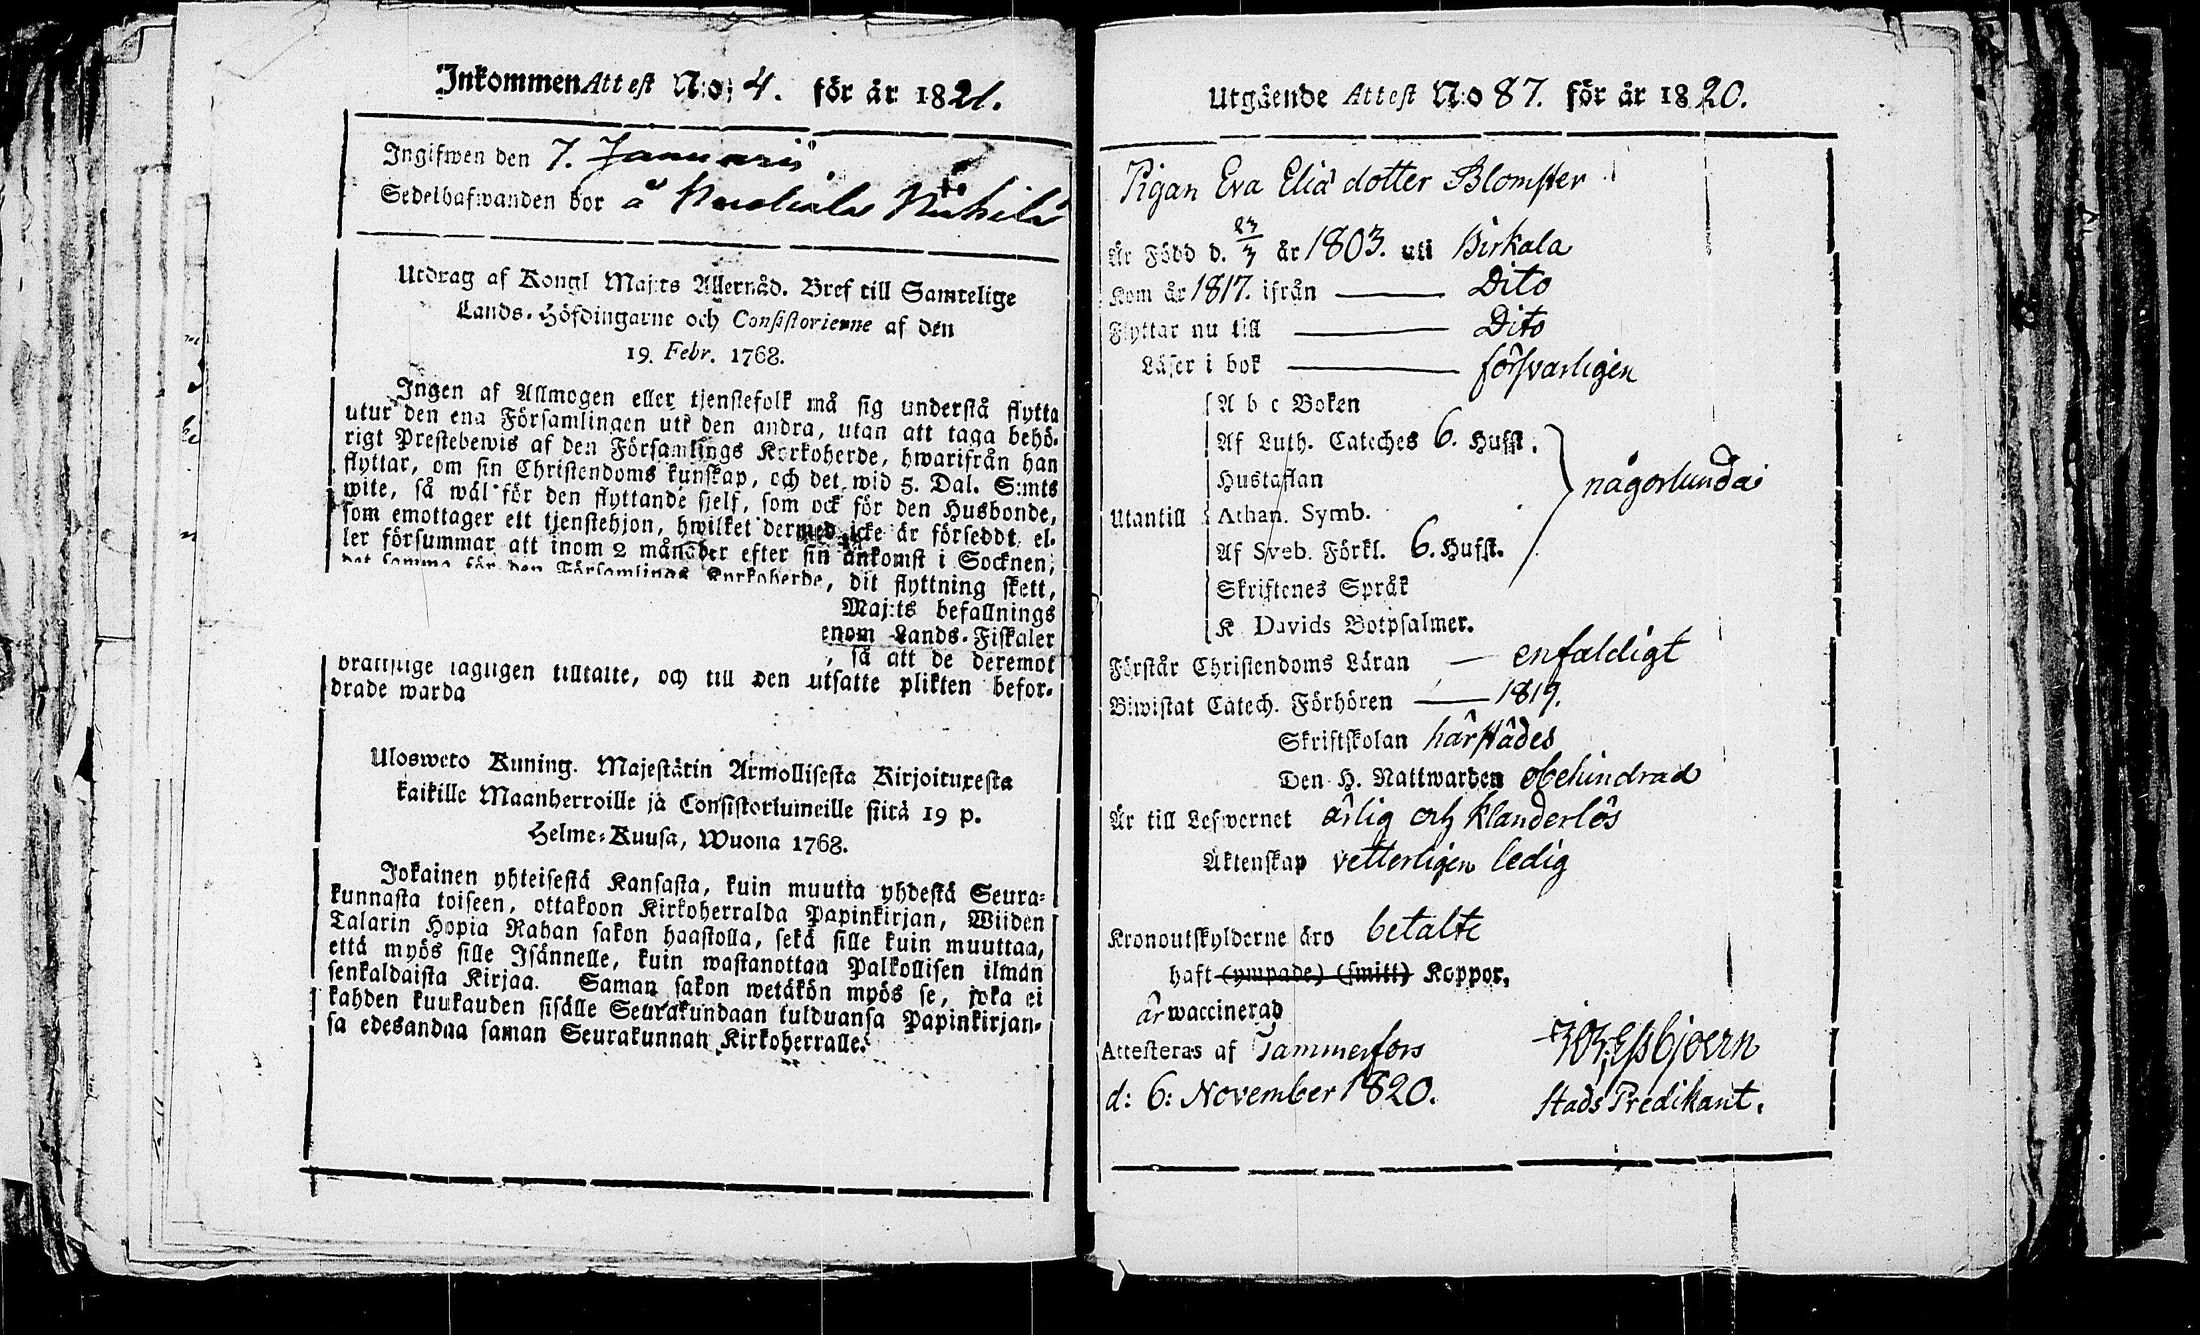 Inkommen Attest N:o; 4. för år 1821.
Ingifwen den 7. Januarii
Sedelhafwanden bor å
Utdrag af Kongl Maj:ts Allernåd. Bref till Samtelige
Lands-Höfdingarne och Consistorierne af den
19. Febr. 1768.
Ingen af Allmogen eller tjenstefolk må sig understå flytta
utur den ena Församlingen uti den andra, utan att taga behö-
rigt Prestebewis af den Församlings Kyrkoherde, hwarifrån han
flyttar, om sin Christendoms kunskap, och det wid 5. Dal. S:mts
wite, så wäl för den flyttande sjelf, som ock för den Husbonde,
som emottager ett tjenstehjon, hwilket dermed icke är försedt, el-
ler försummar att inom 2 månader efter sin ankomst i Socknen,
det samma för den Församlings Kyrkoherde, dit flyttning skett,
Maj:ts befallnings
enom Lands-Fiskaler
, så att de deremot
brottslige lagligen tilltalte, och till den utsatte plikten befor-
drade warda
Ulosweto Kuning. Majestätin Armollisesta Kirjoituxesta
kaikille Maanherroille ja Consistoriumeille siitä 19 p.
Helme-Kuusa, Wuona 1768.
Jokainen yhteisestä Kansasta, kuin muutta yhdestä Seura-
kunnasta toiseen, ottakoon Kirkoherralda Papinkirjan, Wiiden
Talarin Hopia Rahan sakon haastolla, sekä sille kuin muuttaa,
että myös sille Isännelle, kuin wastanottaa Palkollisen ilman
senkaldaista Kirjaa. Saman sakon wetäkön myös se, joka ei
kahden kuukauden sisälle Seurakundaan tulduansa Papinkirjan-
sa edesandaa saman Seurakunnan Kirkoherralle.
Utgående Attest N:o 87. för år 1820.
Pigan Eva Elia dotter Blomster
Är Född d. 23/3 år 1803. uti Birkala
Kom år 1817. ifrån — Dito
Flyttar nu till — Dito
Läser i bok — försvarligen
A b c Boken
Af Luth. Cateches 6. Hufst.
Hustaflan
någorlunda
Utantill Athan. Symb.
Af Sveb. Förkl. 6. Hufst.
Skriftenes Språk
K Davids Botpsalmer.
Förstår Christendoms Läran — enfaldigt
Biwistat Catech. Förhören — 1819.
Skriftskolan härstädes
Den H. Nattwarden obehindrad
Är till Lefwernet ärlig och klanderlös
Äktenskap vetterligen ledig
Kronoutskylderne äro betalte
haft (ympade) (smitt) Koppor.
är waccinerad
Attesteras af Tammerfors
d: 6: November 1820.
Essbjoern
Stads Predikant.